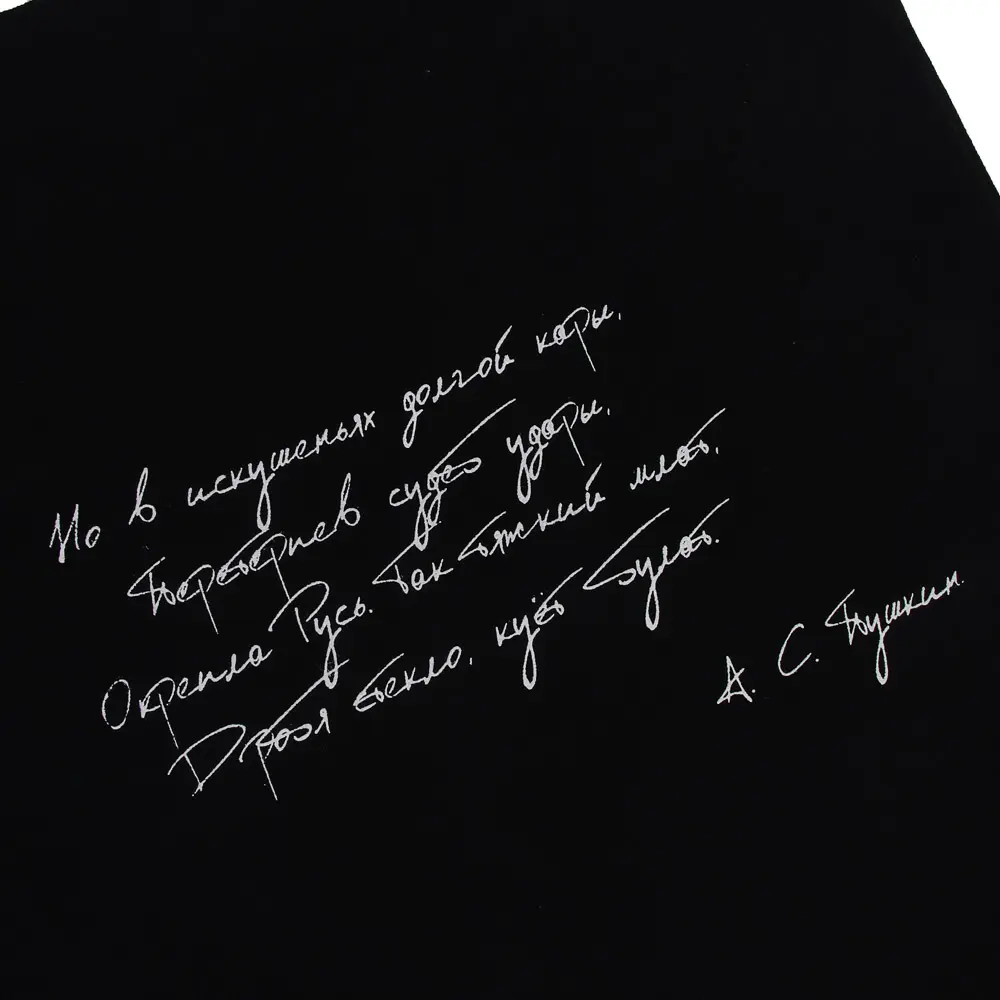 Но в искушеньях долгой кары,
Перетерпев судеб удары,
Окрепла Русь. Так тяжкий млат,
Дробя стекло, куёт булат.
А. С. Пушкин.